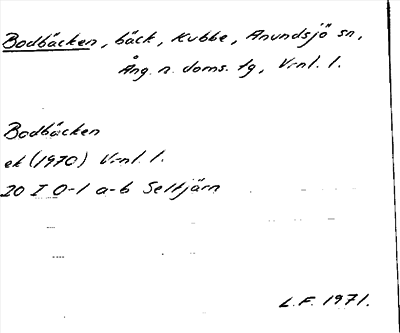 Bodbäcken, bäck, Kubbe, Anundsjö sn,
Ång. n. doms. tg, V:nl. l.
Bodbäcken
ek (1970) V:nl. l.
20 I 0-1 a-b Seltjärn
L.F. 1971.